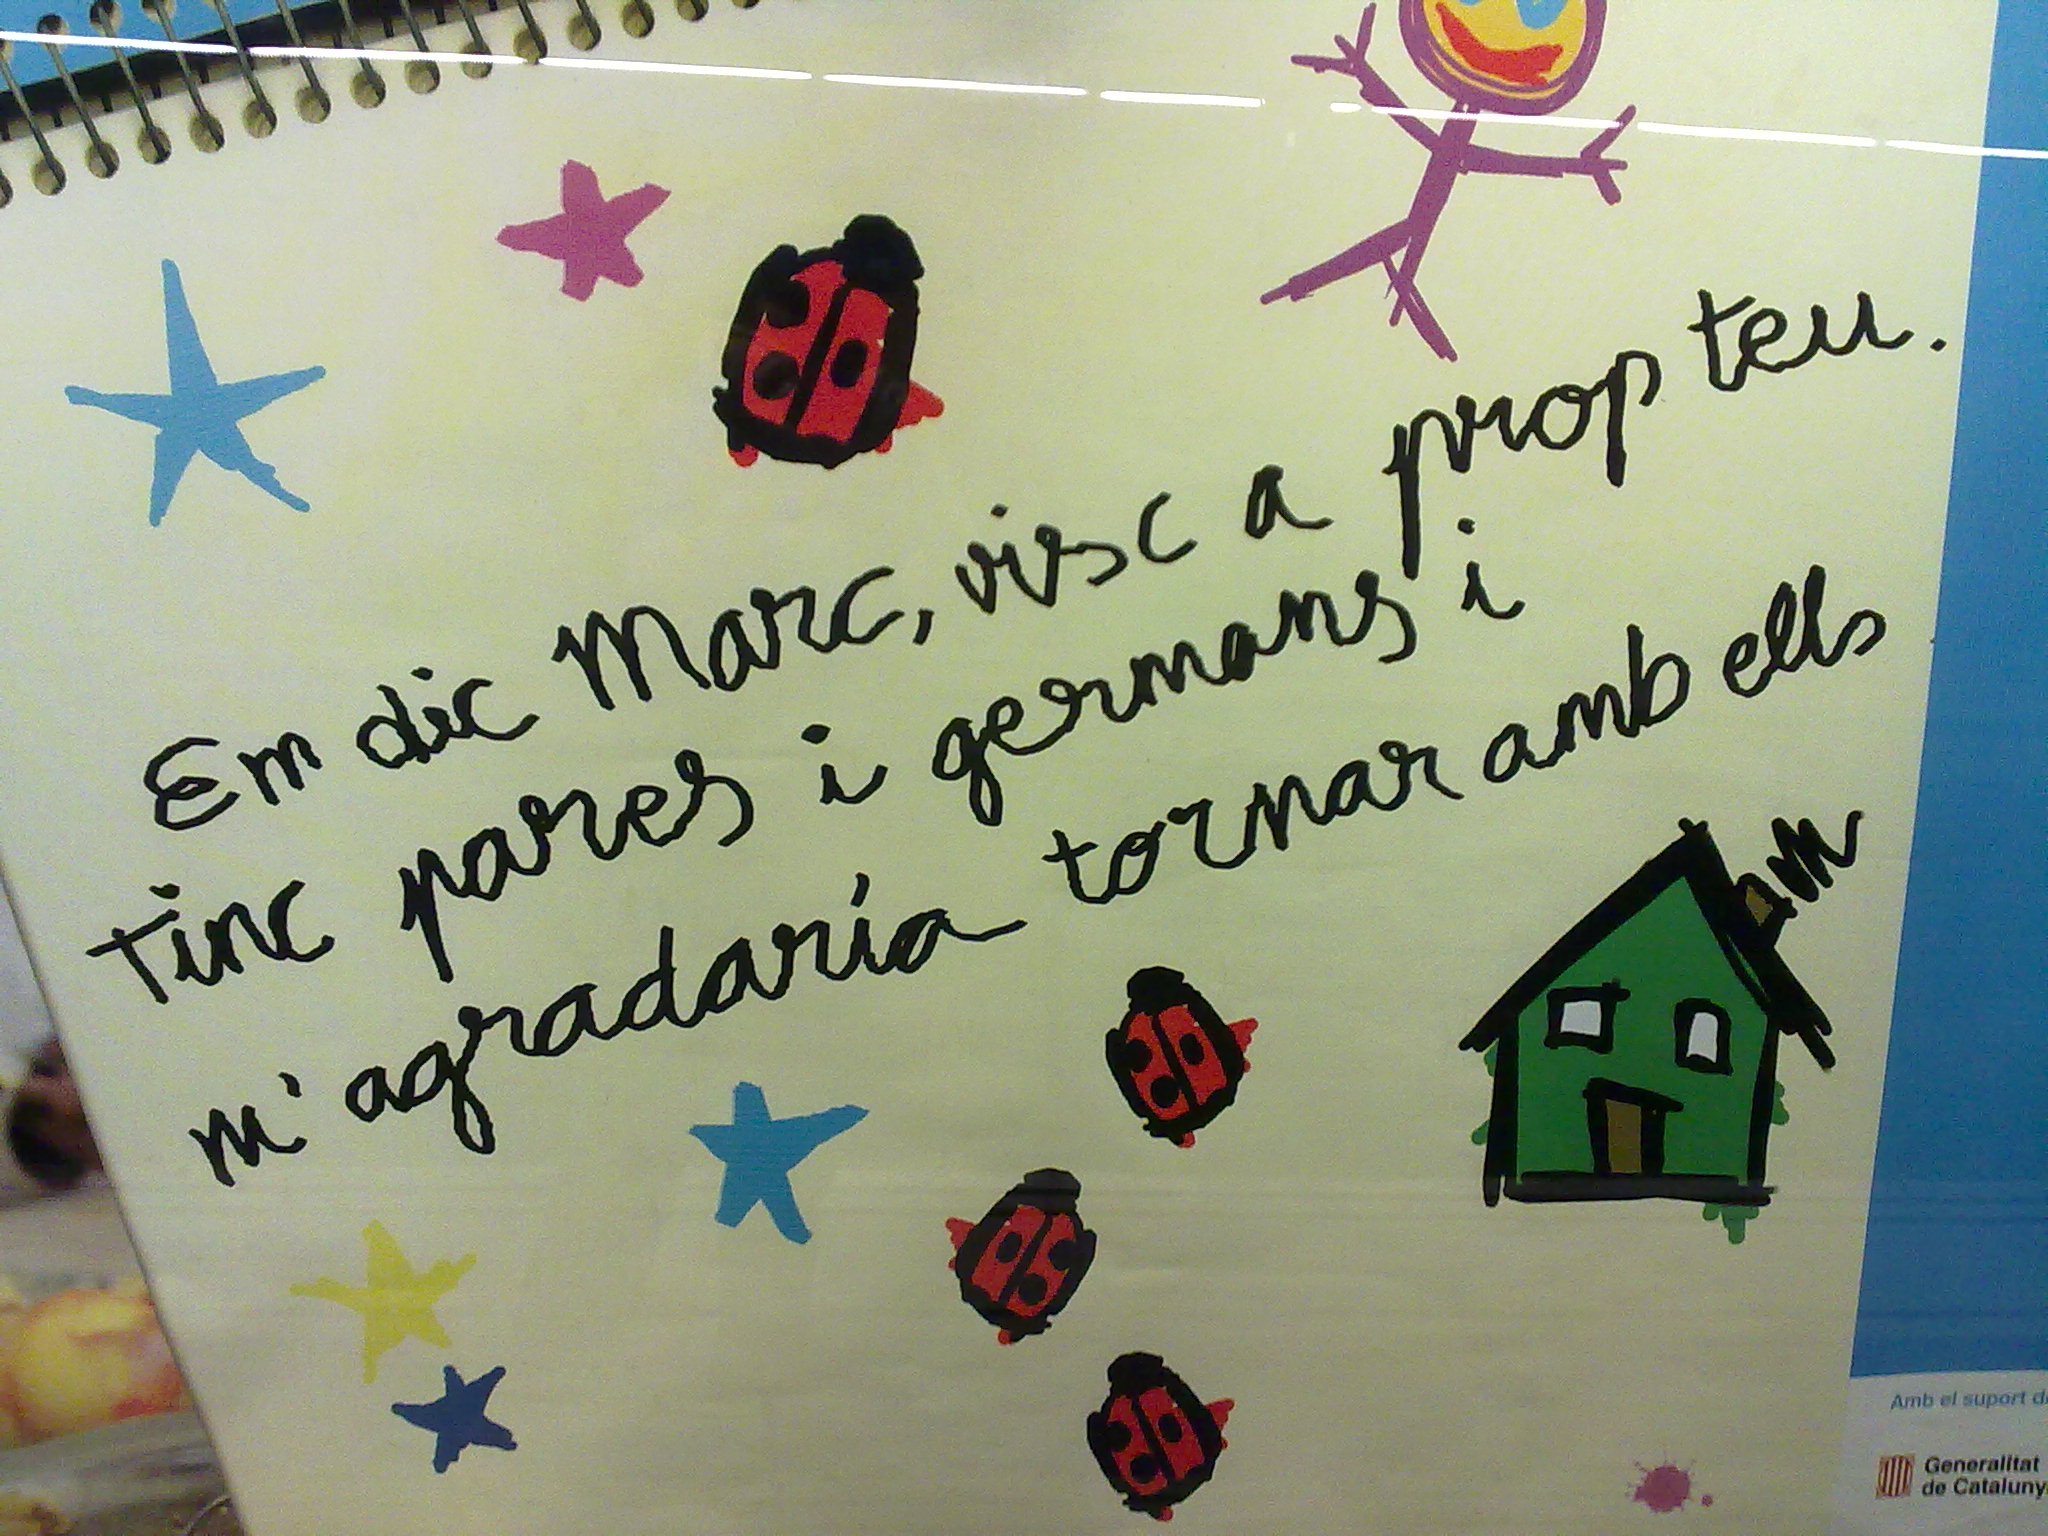 Em dic Marc, visc a prop teu.
Tinc pares i germans i
m'agradaría tornar amb ells
Amb el suport
Generalitat
de Cataluny